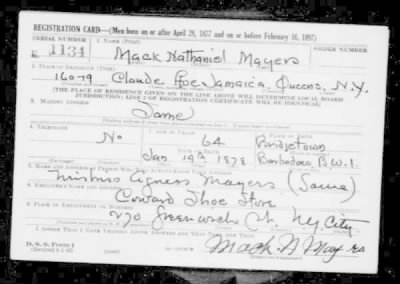 REGISTRATION CARD—(Men born on or after April 28, 1877 and on or before February 16, 1897)
SERIAL NUMBER 1. NAME (Print) ORDER NUMBER
U 1134 Mack Nathaniel Mayers
2. PLACE OF RESIDENCE (Print)
160-79 Claude Ave Jamaica, Queens, N.Y.
[THE PLACE OF RESIDENCE GIVEN ON THE LINE ABOVE WILL DETERMINE LOCAL BOARD
JURISDICTION; LINE 2 OF REGISTRATION CERTIFICATE WILL BE IDENTICAL]
3. MAILING ADDRESS
Same
4. TELEPHONE 5. AGE IN YEARS 6. PLACE OF BIRTH
No 64 Bridgetown
DATE OF BIRTH
Jan 19th 1878 Barbadoes, B.W.I.
7. NAME AND ADDRESS OF PERSON WHO WILL ALWAYS KNOW YOUR ADDRESS
Agness Mayers (Same)
8. EMPLOYER'S NAME AND ADDRESS
Coward Shoe Store
9. PLACE OF EMPLOYMENT OR BUSINESS
270 Greenwich St. Ny. City.
I AFFIRM THAT I HAVE VERIFIED ABOVE ANSWERS AND THAT THEY ARE TRUE.
D. S. S. Form 1
(Revised 4-1-42)
Mack N Mayers